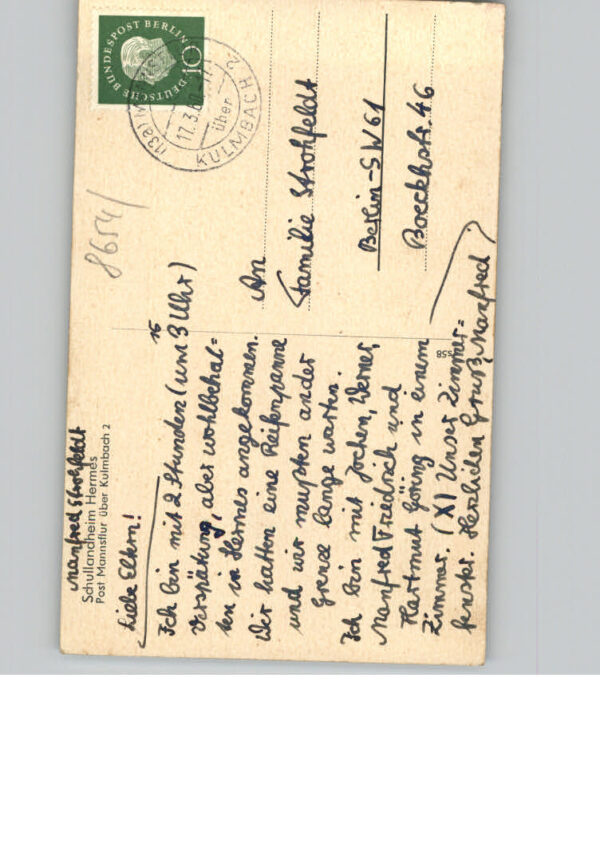 Manfred Strohfeldt
Schullandheim Hermes
Post Mannsflur über Kulmbach 2
Liebe Eltern!
Ich bin mit 2 Stunden (um 3 Uhr)
15
Verspätung, aber wohlbehal=
ten in Hermes angekommen.
Wir hatten eine Reifenpanne
und wir mußten an der
Grence lange warten.
Ich bin mit Jochen, Werner,
Manfred Friedrich und
Hartmut Göring in einem
Zimmer. (X) Unser Zimmer=
fenster. Herzlichen Gruß, Manfred
DEUTSCHE BUNDESPOST BERLIN
10
(13a)
17.3.6
über
KULMBACH 2
8654/
An
Familie Strohfeldt
Berlin-SW 61
Boeckhstr. 46